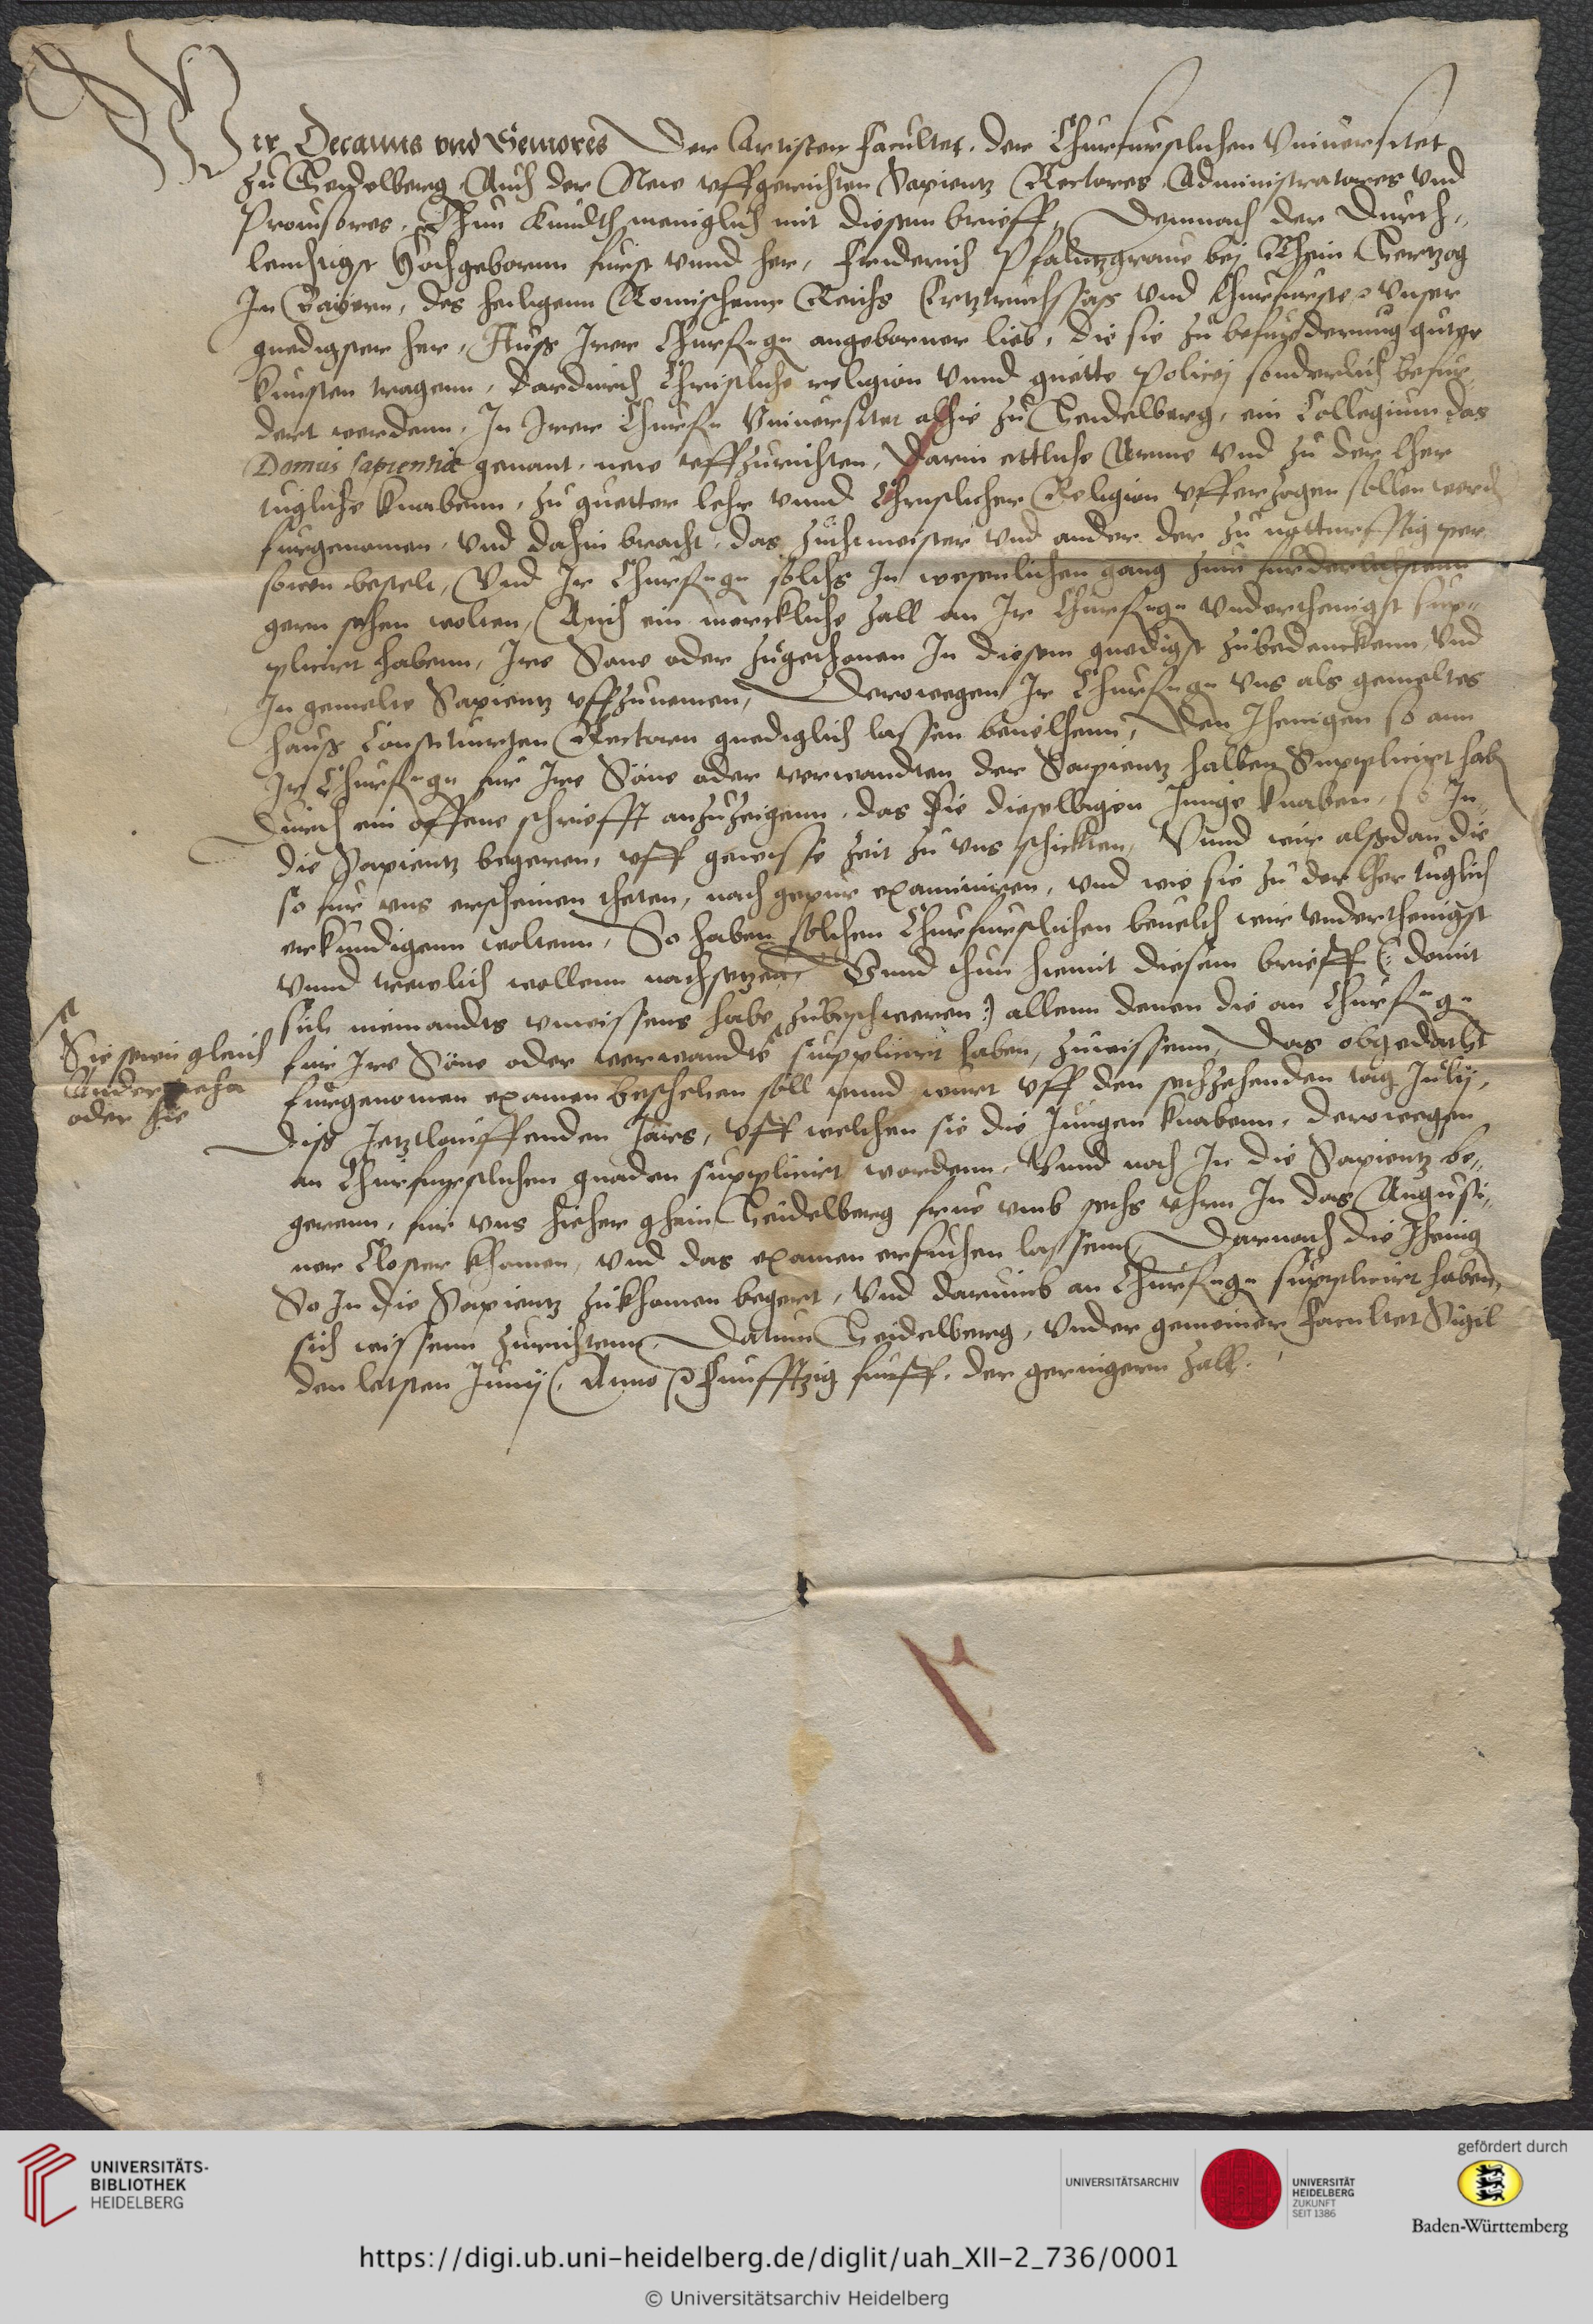 Wir Decanus vnd Seniores Der Artisten Facultet, der Churfurstlichen Vniuersitet
zu Heidelberg Auch der New vffgerichten Sapientz Rectores Administratores vnd
Prouisores, Thun Kundth meniglich mit diesem brieff, Demnach der Durch-
leuchtigst Hochgebornn furst vnnd her, Friderich Pfaltzgraue bej Rhein Hertzog
In Baiern, des heiligenn Romischenn Reichs Ertztruchssas vnd Churfurst Vnser
gnedigster her, Auss Irer Churf. g. angeborner lieb, die sie zu befurderung guter
kunsten tragenn, dardurch Christliche religion vnnd guette Policej sonderlich befur-
dert werdenn, In Irer Churf. Vniuersitet alhie zu Heidelberg, ein Collegium das
Domus sapientiæ genant, new vffzurichten, Darin ettliche Arme vnd zu der lher
tugliche knabenn, zu guetter lehr vnnd Christlicher Religion vfferzogen sollen werd
furgenomen, vnd dahin bracht, das Zuchtmeister vnd ander der zu notturfftig per
sonen bestelt, Vnd Ir Churf. g. solchs In wesenlichen gang zum furderlichstenn
gern sehen wolten, Auch ein merckliche zall an Ir Churf. g. vnderthenigst sup-
plicirt habenn, Ire Sone oder zugethonen In diesem gnedigst zubedenckenn, vnd
In gemelte Sapientz vffzunemen, Derowegen Ir Churf. g. vns als gemeltes
hauss Constituirten Rectorn gnediglich lassen beuelhenn, Den Jhenigen so ann
Ir Churf. g. fur Ire Söne oder verwandten der Sapientz halben Supplicirt hab
Durch ein offene schriefft anzuzeigenn, das Sie dieselbigen Junge knaben, so In
die Sapientz begeren, vff gewisse zeit zu vns schickten, Vnnd wir alssdan die
so fur vns erscheinen theten, nach gepur examiniren, vnd wie sie zu der lher tuglich
erkundigenn woltenn, So haben solchen Churfurstlichen beuelch wir vnderthenigst
vnnd trewlich wollenn nachsetzen Vnnd thun hiemit diesem brieff (: damit
sich niemandts vnwissens habe zubeschweren :) allenn denen die an Churf. g.
fur Ire Söne oder verwandte supplicirt haben, zuwissenn, Das obgedacht
Sie seien gleich
Ander
oder hie
furgenomen examen beschehen soll vnnd wirt vff den sechzehenden tag Julij,
Diss Jetztlauffenden Jars, Vff welchen sie die Jungen knabenn, derowegen
an Churfurstlichen gnaden supplicirt wordenn, Vnnd noch In die Sapientz be-
gerenn, fur vns hieher ghein Heidelberg frue vmb sechs vhrn In das Augusti-
ner Closter khomen, vnd das examen ersuchen lassenn, Darnach die Jhenig
So In die Sapientz zukhomen begert, Vnd darumb an Churf. g. supplicirt haben,
sich wissenn zurichtenn, Datum Heidelberg, vnder gemeiner Facultet Sigil
den letsten Junij, Anno Funfftzig funff, der geringern zall.
UNIVERSITÄTS-
BIBLIOTHEK
HEIDELBERG
UNIVERSITÄTSARCHIV
UNIVERSITÄT
HEIDELBERG
ZUKUNFT
SEIT 1386
gefördert durch
Baden-Württemberg
https://digi.ub.uni-heidelberg.de/diglit/uah_XII-2_736/0001
© Universitätsarchiv Heidelberg